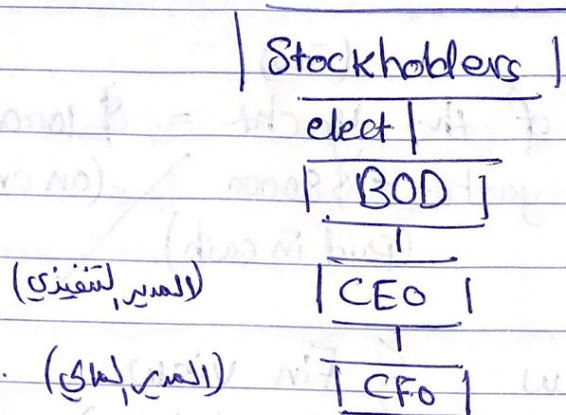 Stockholders
elect
BOD
CEO (المدير التنفيذي)
CFO (المدير المالي)